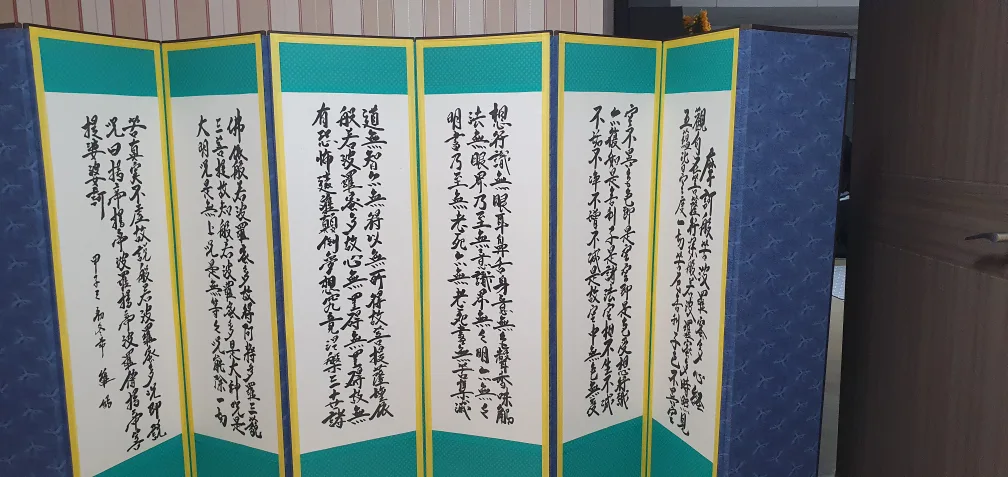 摩訶般若波羅蜜多心經
觀自在菩薩行深般若波羅蜜多時照見
五蘊皆空度一切苦厄舍利子色不異空
空不異色色即是空空即是色受想行識
亦復如是舍利子是諸法空相不生不滅
不垢不淨不增不減是故空中無色無受
想行識無眼耳鼻舌身意無色聲香味觸
法無眼界乃至無意識界無々明亦無々
明盡乃至無老死亦無老死盡無苦集滅
道無智亦無得以無所得故菩提薩埵依
般若波羅蜜多故心無罣碍無罣碍故無
有恐怖遠離顛倒夢想究竟涅槃三世諸
佛依般若波羅蜜多故得阿耨多羅三藐
三菩提故知般若波羅蜜多是大神呪是
大明呪是無上呪是無等々呪能除一切
苦真實不虛故說般若波羅蜜多呪即說
呪曰揭帝揭帝波羅揭帝波羅僧揭帝菩
提娑婆訶
甲子 初冬